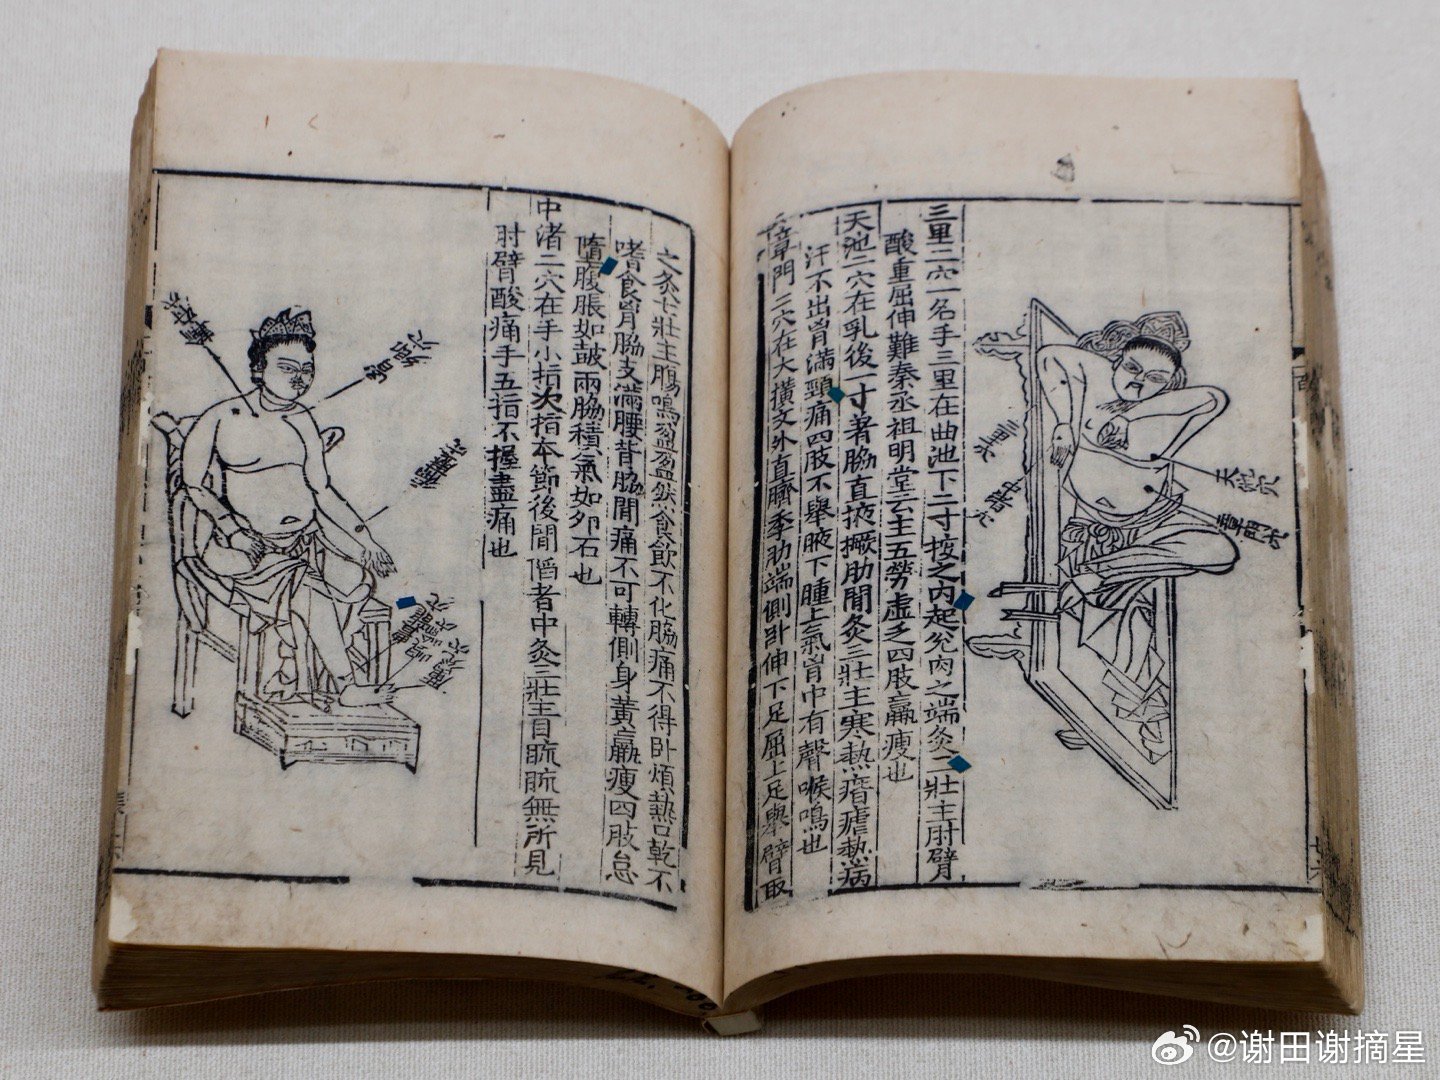 三里二穴一名手三里在曲池下二寸按之肉起兊肉之端灸二壯主肘臂
酸重屈伸難秦丞祖明堂云主五勞虛乏四肢羸瘦也
天池二穴在乳後一寸著脇直掖撅肋間灸三壯主寒熱痎瘧熱病
汗不出胷滿頸痛四肢不舉腋下腫上氣胷中有聲喉鳴也
章門二穴在大橫文外直臍季肋端側卧伸下足屈上足舉臂取
之灸七壯主腸鳴盈盈然食飲不化脇痛不得卧煩熱口乾不
嗜食胷脇支滿腰背脇間痛不可轉側身黃羸瘦四肢怠
墮腹脹如鼓兩脇積氣如卵石也
中渚二穴在手小指次指本節後間陷者中灸三壯主目䀮䀮無所見
肘臂酸痛手五指不握盡痛也
三里穴
天池穴
章門穴
中渚穴
@谢田谢摘星